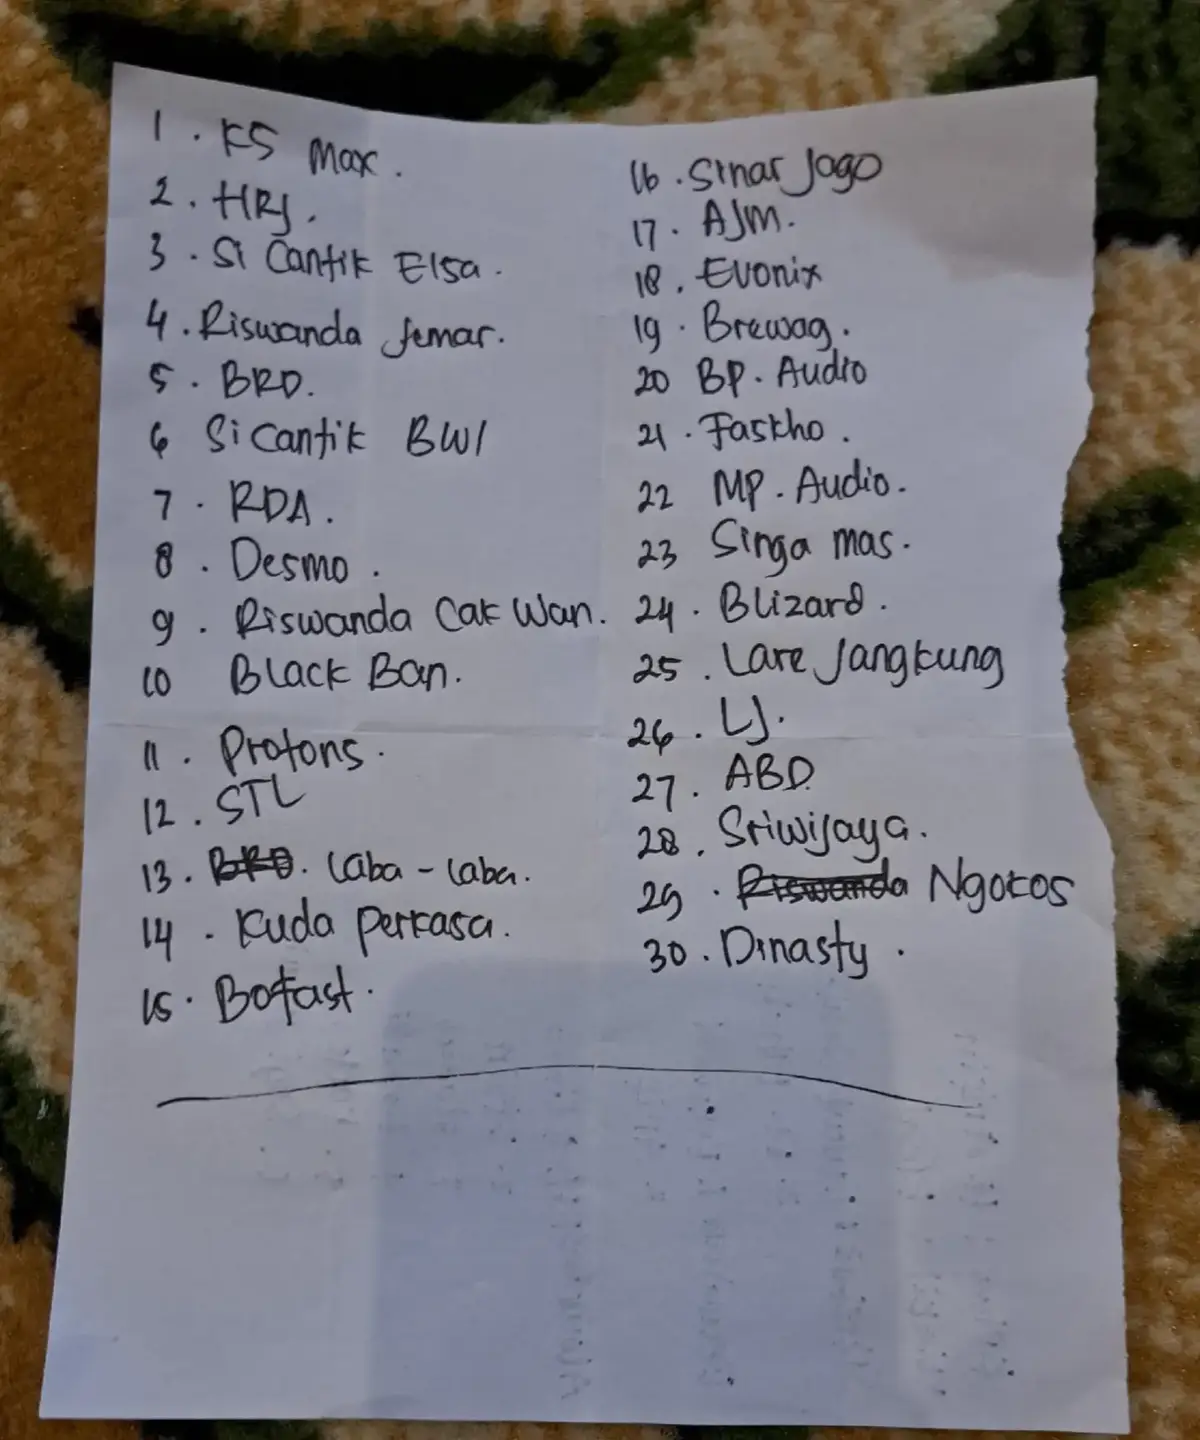 1. KS Max.
2. HRJ.
3. Si Cantik Elsa.
4. Riswanda Jemar.
5. BRD.
6 Si Cantik BWI
7. RDA.
8. Desmo.
9. Riswanda Cak Wan.
10 Black Ban.
11. Protons.
12. STL
13. BRD. Laba-laba.
14. Kuda Perkasa.
15. Bofast.
16. Sinar Jogo
17. AJM.
18. Evonix
19. Brewog.
20 BP. Audio
21. Faskho.
22 MP. Audio.
23 Singa mas.
24. Blizard.
25. Lare Jangkung
26. LJ.
27. ABD.
28. Sriwijaya.
29. Riswanda Ngokos
30. Dinasty.